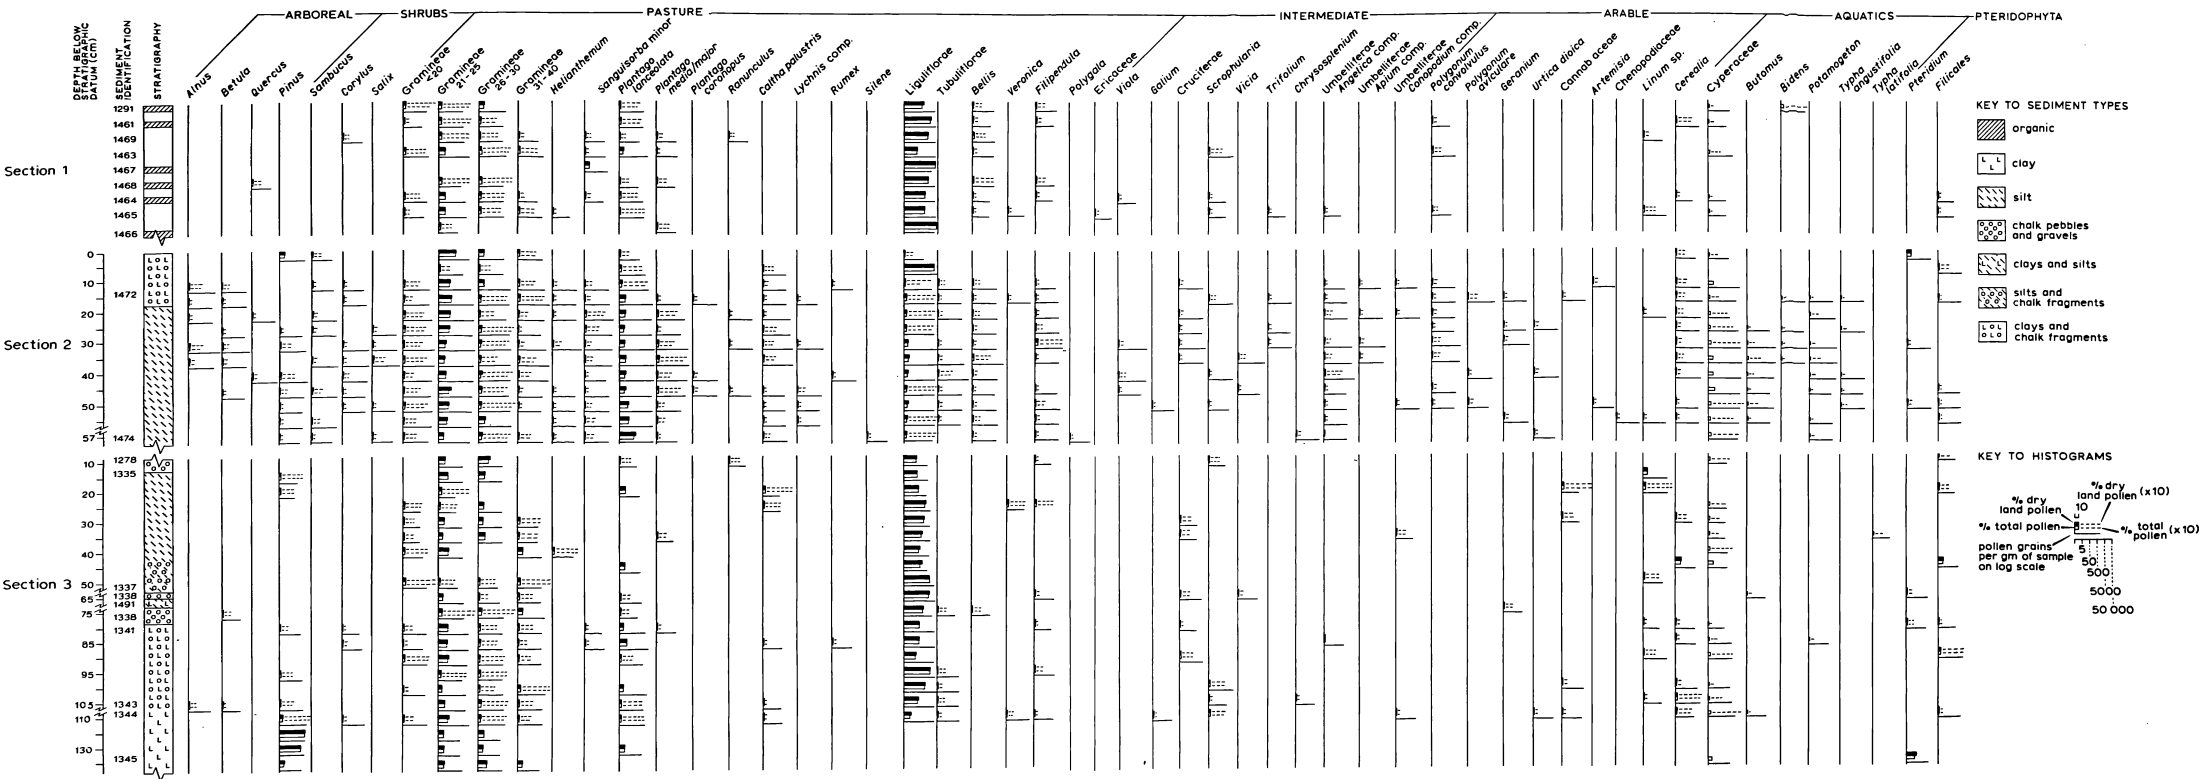 ARBOREAL SHRUBS PASTURE INTERMEDIATE ARABLE AQUATICS PTERIDOPHYTA
DEPTH BELOW STRATIGRAPHIC DATUM (cm)
SEDIMENT IDENTIFICATION
STRATIGRAPHY
Alnus
Betula
Quercus
Pinus
Sambucus
Corylus
Salix
Gramineae 12-20
Gramineae 21-25
Gramineae 26-30
Gramineae 31-40
Helianthemum
Sanguisorba minor
Plantago lanceolata
Plantago media/major
Plantago coronopus
Ranunculus
Caltha palustris
Lychnis comp.
Rumex
Silene
Liguliflorae
Tubuliflorae
Bellis
Veronica
Filipendula
Polygala
Ericaceae
Viola
Galium
Cruciferae
Scrophularia
Vicia
Trifolium
Chrysosplenium
Umbelliferae Angelica comp.
Umbelliferae Apium comp.
Umbelliferae Conopodium comp.
Polygonum convolvulus
Polygonum aviculare
Geranium
Urtica dioica
Cannabaceae
Artemisia
Chenopodiaceae
Linum sp.
Cerealia
Cyperaceae
Butomus
Bidens
Potamogeton
Typha angustifolia
Typha latifolia
Pteridium
Filicales
Section 1
1291
1461
1469
1463
1467
1468
1464
1465
1466
Section 2
0
10
1472
20
30
40
50
57 1474
Section 3
1278
10
1335
20
30
40
50
1337
1338
65
1491
75
1338
1341
85
95
105 1343
1344
110
130
1345
KEY TO SEDIMENT TYPES
organic
clay
silt
chalk pebbles
and gravels
clays and silts
silts and
chalk fragments
clays and
chalk fragments
KEY TO HISTOGRAMS
% dry
land pollen
10
% dry
land pollen (x10)
% total pollen
% total
pollen (x10)
pollen grains
per gm of sample
on log scale
5
50
500
5000
50 000